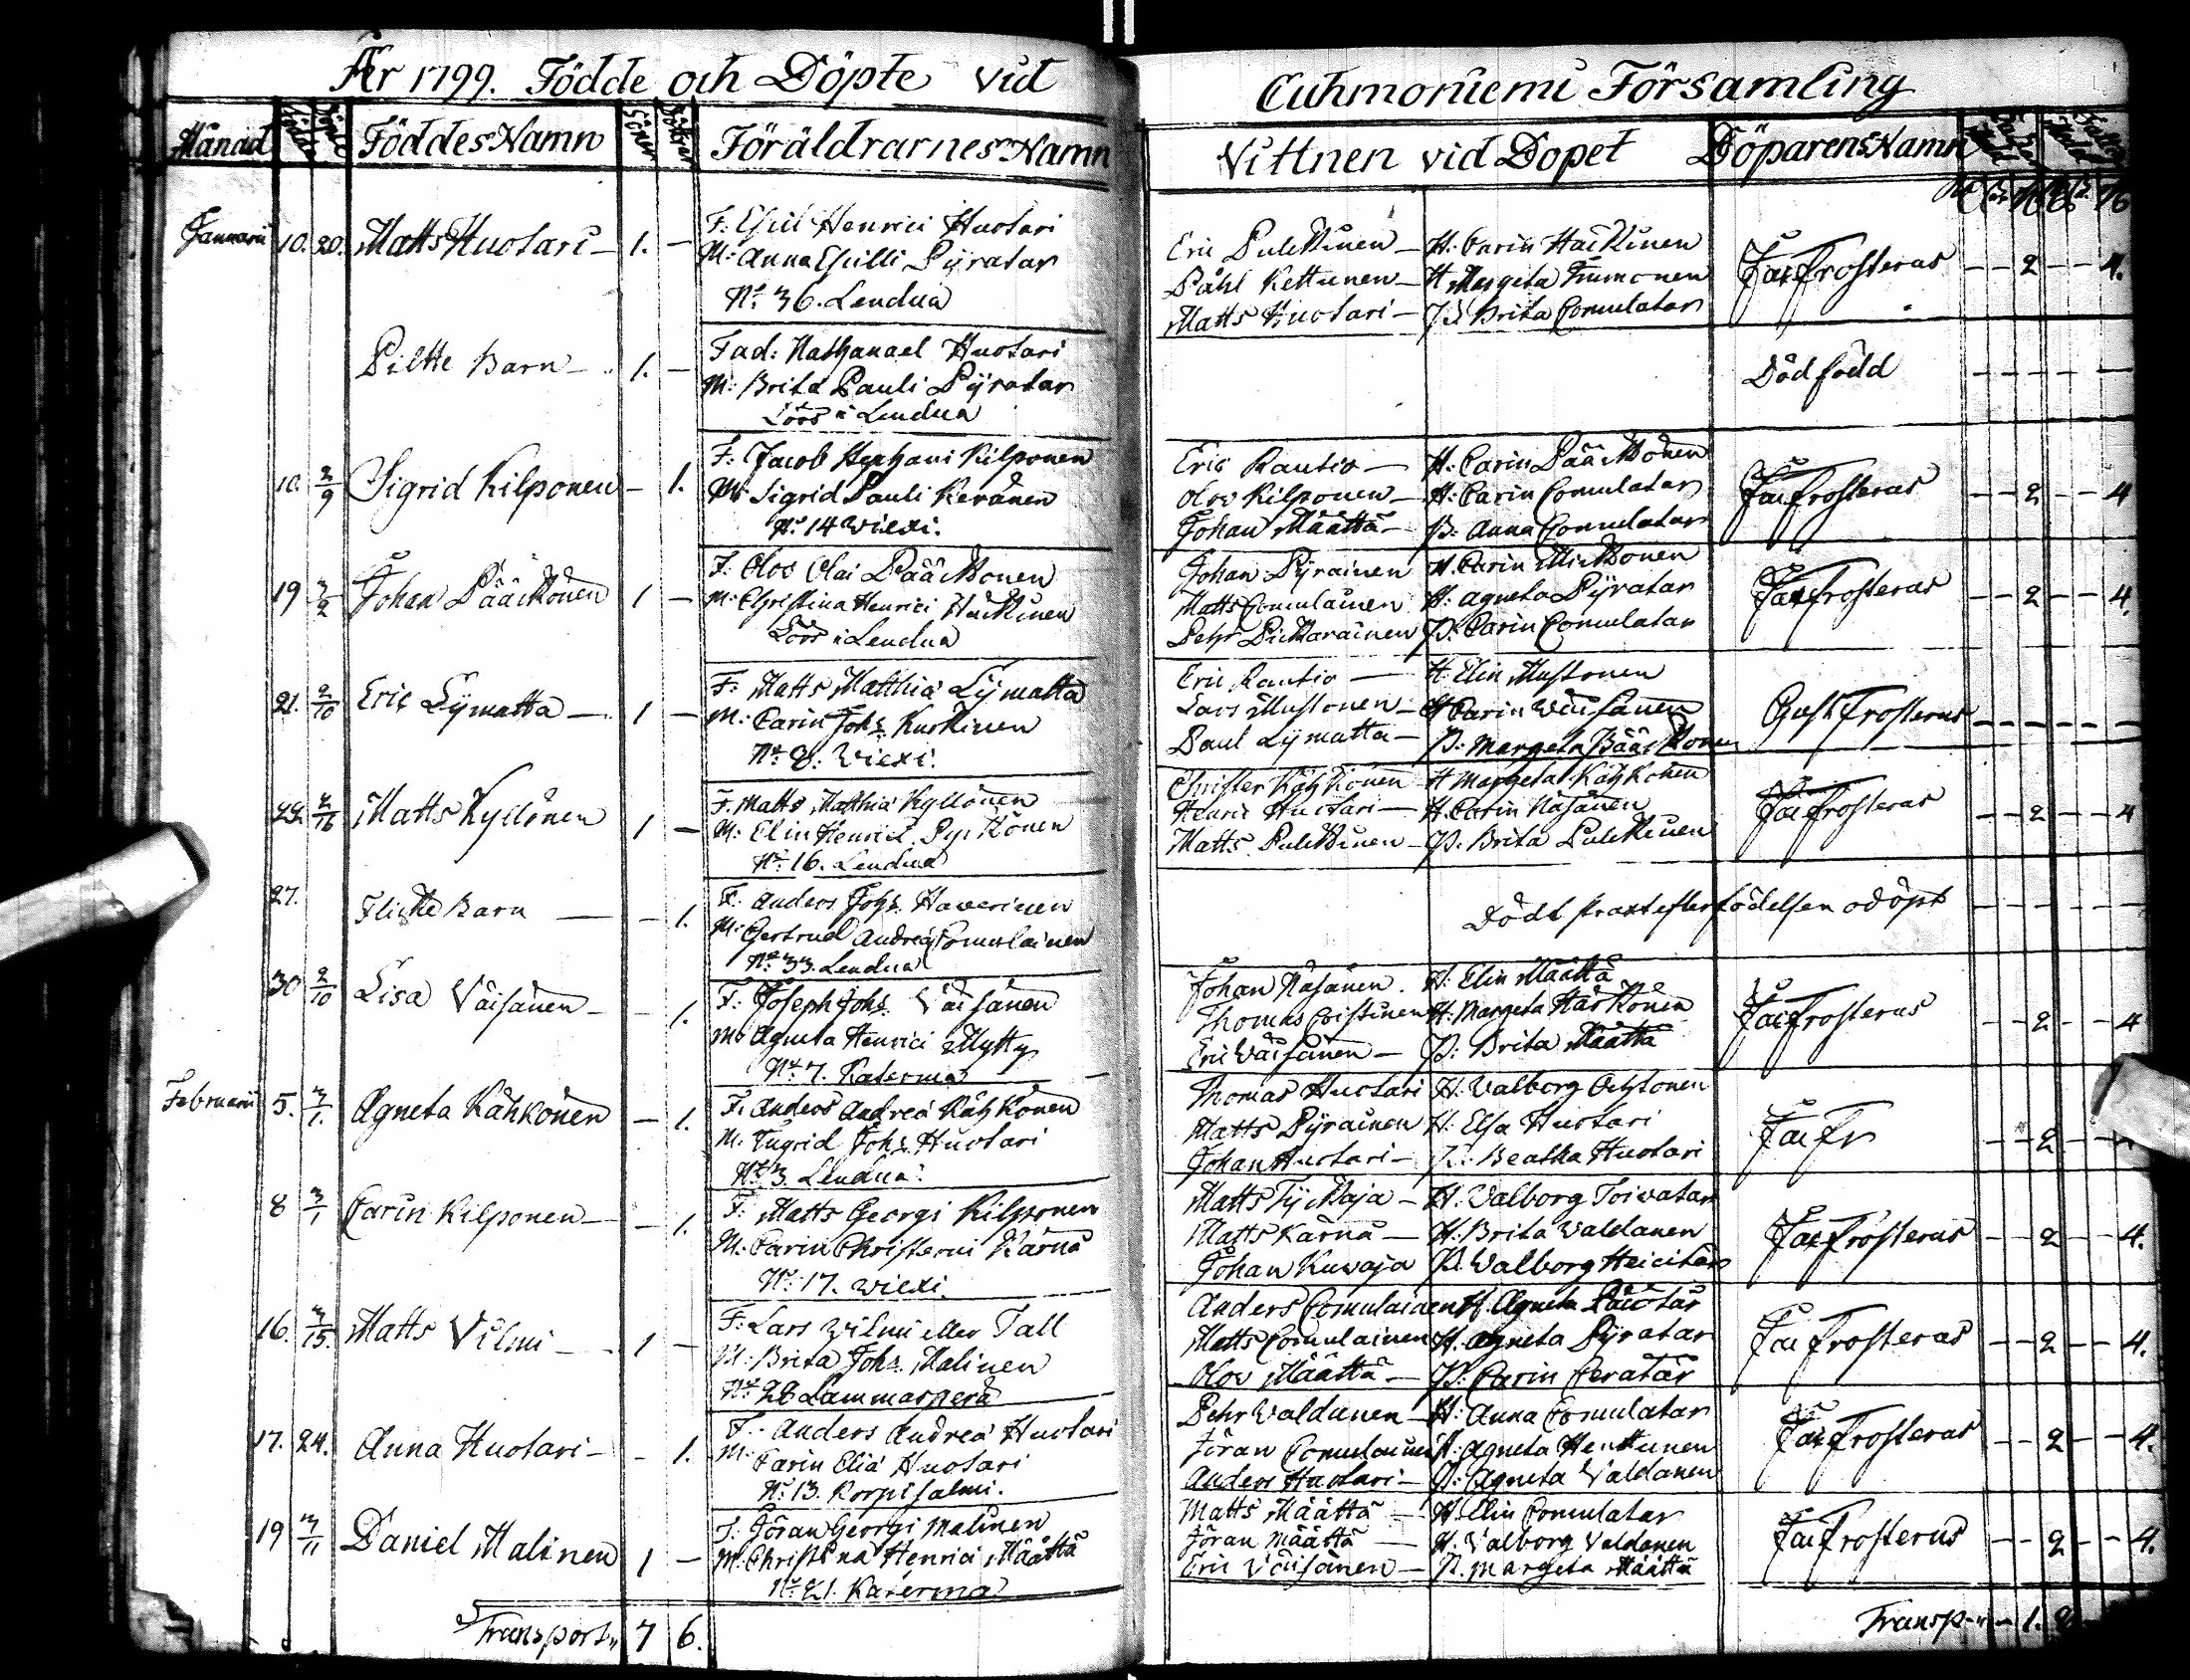 År 1799. Födde och Döpte vid
Cuhmoniemi Församling
Månad Födde Döpte Föddes Namn Söner Döttrar Föräldrarnes Namn
Vittnen vid Dopet Döparens Namn
Januarii 10. 20. Matts Huotari - 1. -
F: Esyil Henrici Huotari
M: Anna Esyilli Pyratar
No. 36. Lendua
Eric Pulckinen - H. Carin Haickinen
Påhl Kettunen - H. Margeta Immonen
Matts Huotari - P. Brita Comulatar
Jac Frosterus - - 2 - - 4.
Piltte Barn - 1. -
Fad: Nathanael Huotari
M: Brita Pauli Pyratar
Löös i Lendua
Död född - - - - - -
10. 2/9 Sigrid Kilponen - 1.
F: Jacob Stephani Kilponen
M: Sigrid Pauli Keränen
No. 14 Wiexi.
Eric Rautio - H. Carin Pääckönen
Olov Kilponen - H. Carin Comulatar
Johan Määttä - P. Anna Comulatar
Jac Frosterus - - 2 - - 4
19 3/2 Johan Pääckönen 1 -
F: Olov Olai Pääckönen
M: Christina Henrici Haickinen
Löös i Lendua
Johan Pyrainen H. Carin Mickonen
Matts Comulainen H. Agneta Pyratar
Pehr Pickarainen P. Carin Comulatar
Jac Frosterus - - 2 - - 4.
21. 2/10 Eric Lymatta - 1 -
F: Matts Matthiæ Lymatta
M: Carin Johs. Kurkinen
No. 8. Wiexi.
Eric Rautio - H. Elin Mustonen
Lars Mustonen - H. Carin Wäisänen
Paul Lymatta - P. Margeta Pääckönen
Gust. Frosterus - - - - - -
22 2/16 Matts Kyllönen 1 -
F. Matts Matthiæ Kyllönen
M: Elin Henrici Pyyckönen
No. 16. Lendua
Christer Kähkönen H. Margeta Kähkönen
Henric Huotari - H. Carin Näsänen
Matts Pulckinen - P. Brita Pulckinen
Jac Frosterus - - 2 - - 4
27. Flicke Barn - - 1.
F. Anders Johs. Hawerinen
M. Gertrud Andreæ Comulainen
No. 33. Lendua
Dödt strax efter födelsen odöpt - - - - - -
30 2/10 Lisa Väisänen - - 1.
F: Joseph Johs. Väisänen
M: Agneta Henrici Mytty
No. 7. Katerma
Johan Näsänen. H. Elin Määttä
Thomas Coistinen H. Margeta Härkönen
Eric Wäisänen - P. Brita Määttä
Jac Frosterus - - 2 - - 4
Februarii 5. 3/1. Agneta Kähkönen - 1.
F. Anders Andreæ Kähkönen
M. Ingrid Johs. Huotari
No. 3. Lendua.
Thomas Huotari H. Valborg Ochtonen
Matts Pyrainen H. Elsa Huotari
Johan Huotari - P. Beatha Huotari
Jac Fr - - 2 - -
8 3/1 Carin Kilponen - - 1.
F. Matts Georgi Kilponen
M. Carin Christerni Kärnä
No. 17. Wiexi.
Matts Tyckaja - H. Valborg Toivatar
Matts Kärnä - H. Brita Waldanen
Johan Kuvaja P. Walborg Heicitar
Jac Frosterus - - 2 - - 4.
16. 3/15. Matts Vilmi - 1 -
F: Lars Wilmi eller Tall
M: Brita Johs. Malinen
No. 28 Lammasperä
Anders Comulainen H. Agneta
Matts Comulainen H. Agneta Pyratar
Olov Määttä - P. Carin Ceratär
Jac Frosterus - - 2 - - 4.
17. 24. Anna Huotari - - 1.
F. Anders Andreæ Huotari
M. Carin Eliæ Huotari
No. 13. Korpisalmi.
Pehr Waldanen - H: Anna Comulatar
Jöran Comulainen H. Agneta Henttunen
Anders Huotari - P. Agneta Valdanen
Jac Frosterus - - 2 - - 4.
19 3/11 Daniel Malinen 1 -
F. Jöran Georgi Malinen
M. Christina Henrici Määttä
No. 21. Katerma
Matts Määttä - H. Elin Comulatar
Jöran Määttä - H. Valborg Valdanen
Eric Väisänen - P. Margeta Määttä
Jac Frosterus - - 2 - - 4.
Transport 7 6.
Transp - 1.